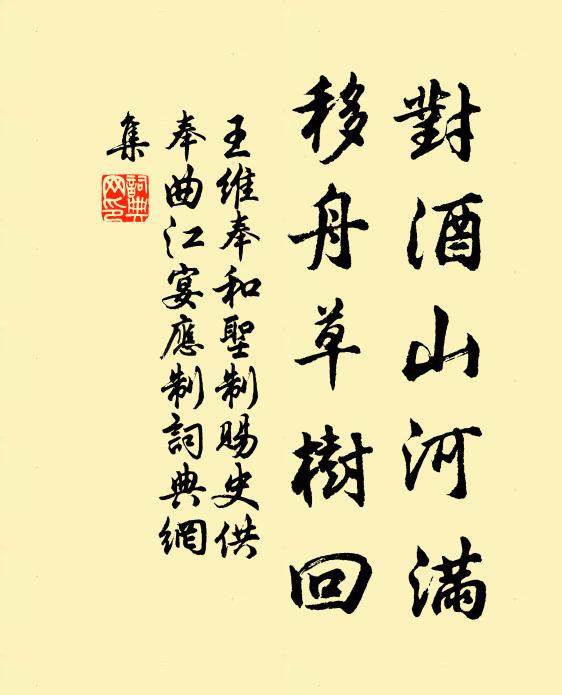 對酒山河滿
移舟草樹回
王維奉和聖制賜史供
奉曲江宴應制詞典網
集
詞典
网印